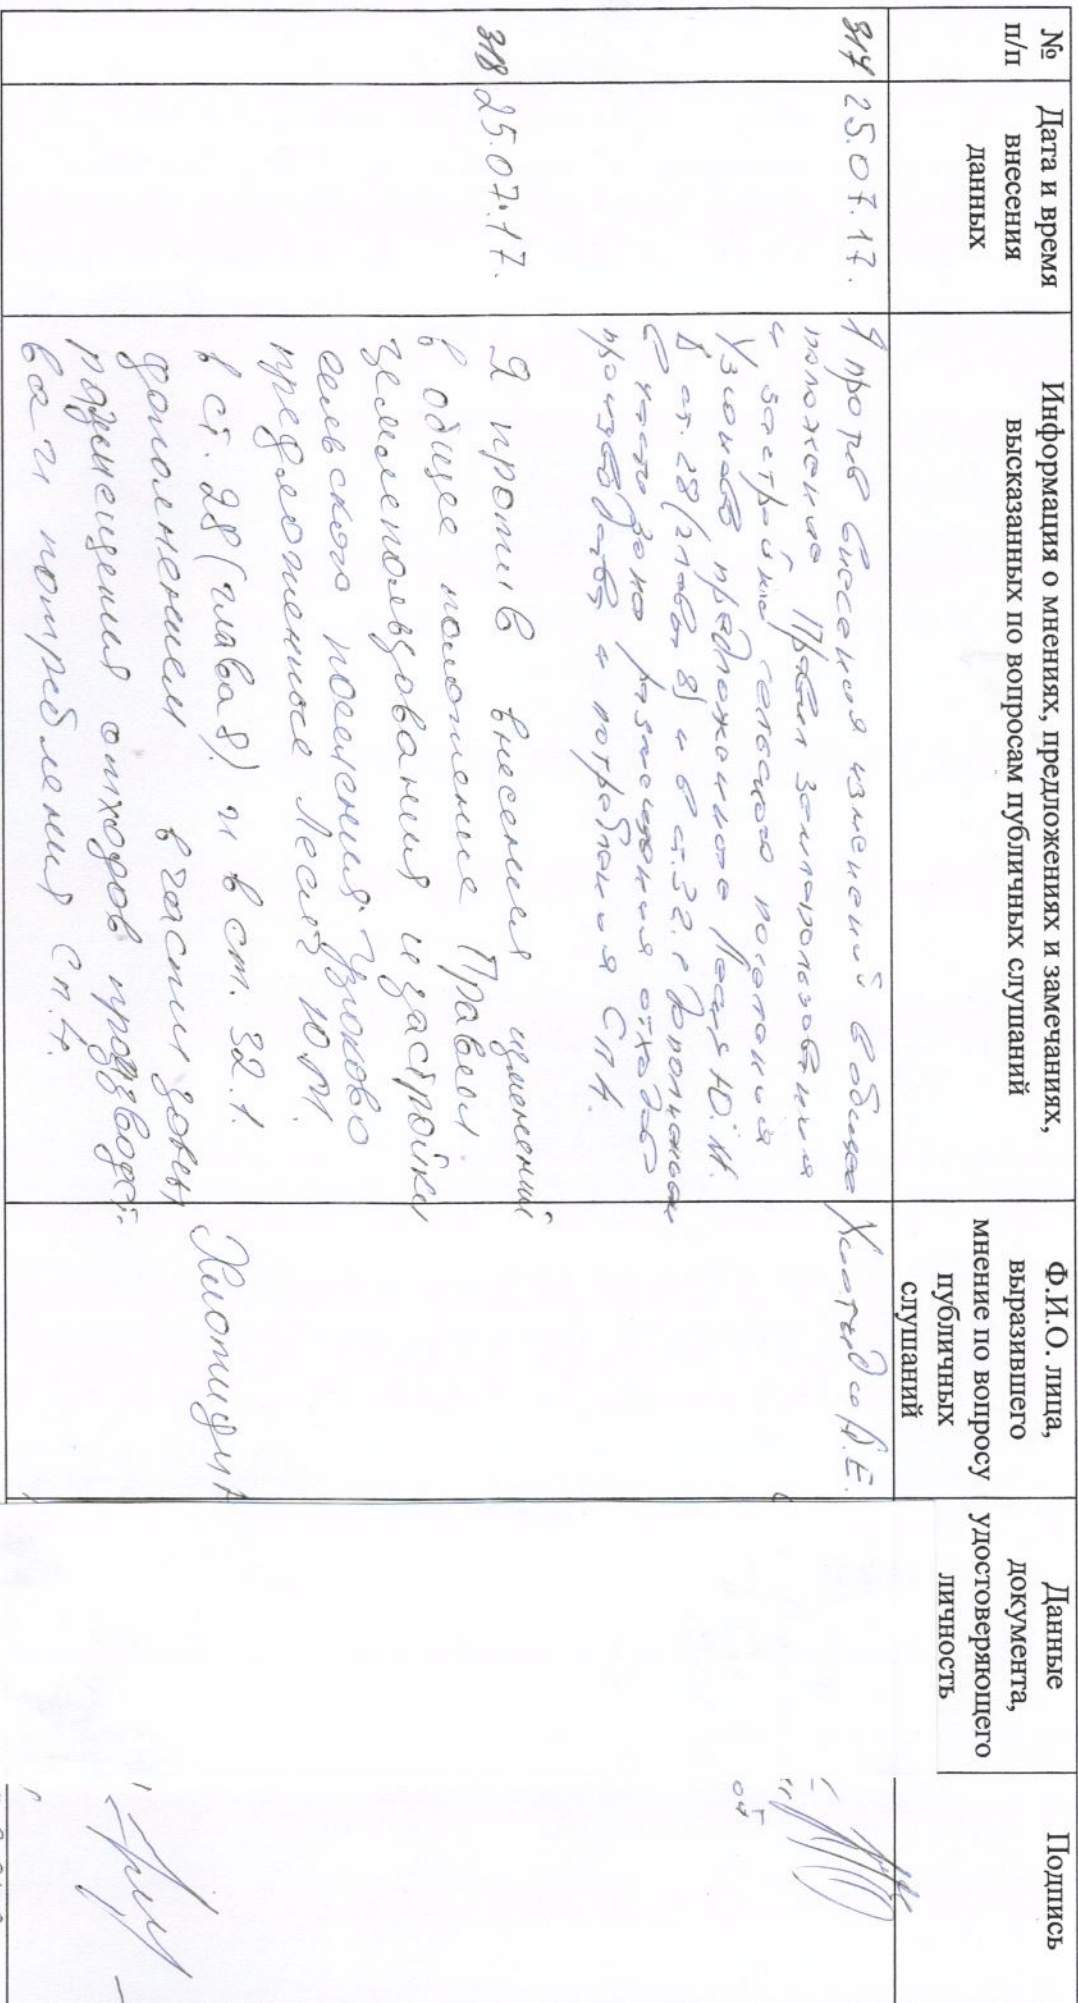 № п/п
Дата и время внесения данных
Информация о мнениях, предложениях и замечаниях, высказанных по вопросам публичных слушаний
Ф.И.О. лица, выразившего мнение по вопросу публичных слушаний
Данные документа, удостоверяющего личность
Подпись
317
25.07.17.
Я против внесения изменений в общее
положение Правил землепользования
и застройки сельского поселения
Узюково предложенное Лесая Ю.М.
в ст. 28 (глава 8) и в ст. 32.1 дополнением
в части зона размещения отходов
производства и потребления Сп4.
318
25.07.17.
Я против внесения изменений
в общее положение Правил
землепользования и застройки
сельского поселения Узюково
предложенное Ю.М.
в ст. 28 (глава 8) и в ст. 32.1.
дополнением в части зоны
размещения отходов производст-
ва и потребления Сп.4.